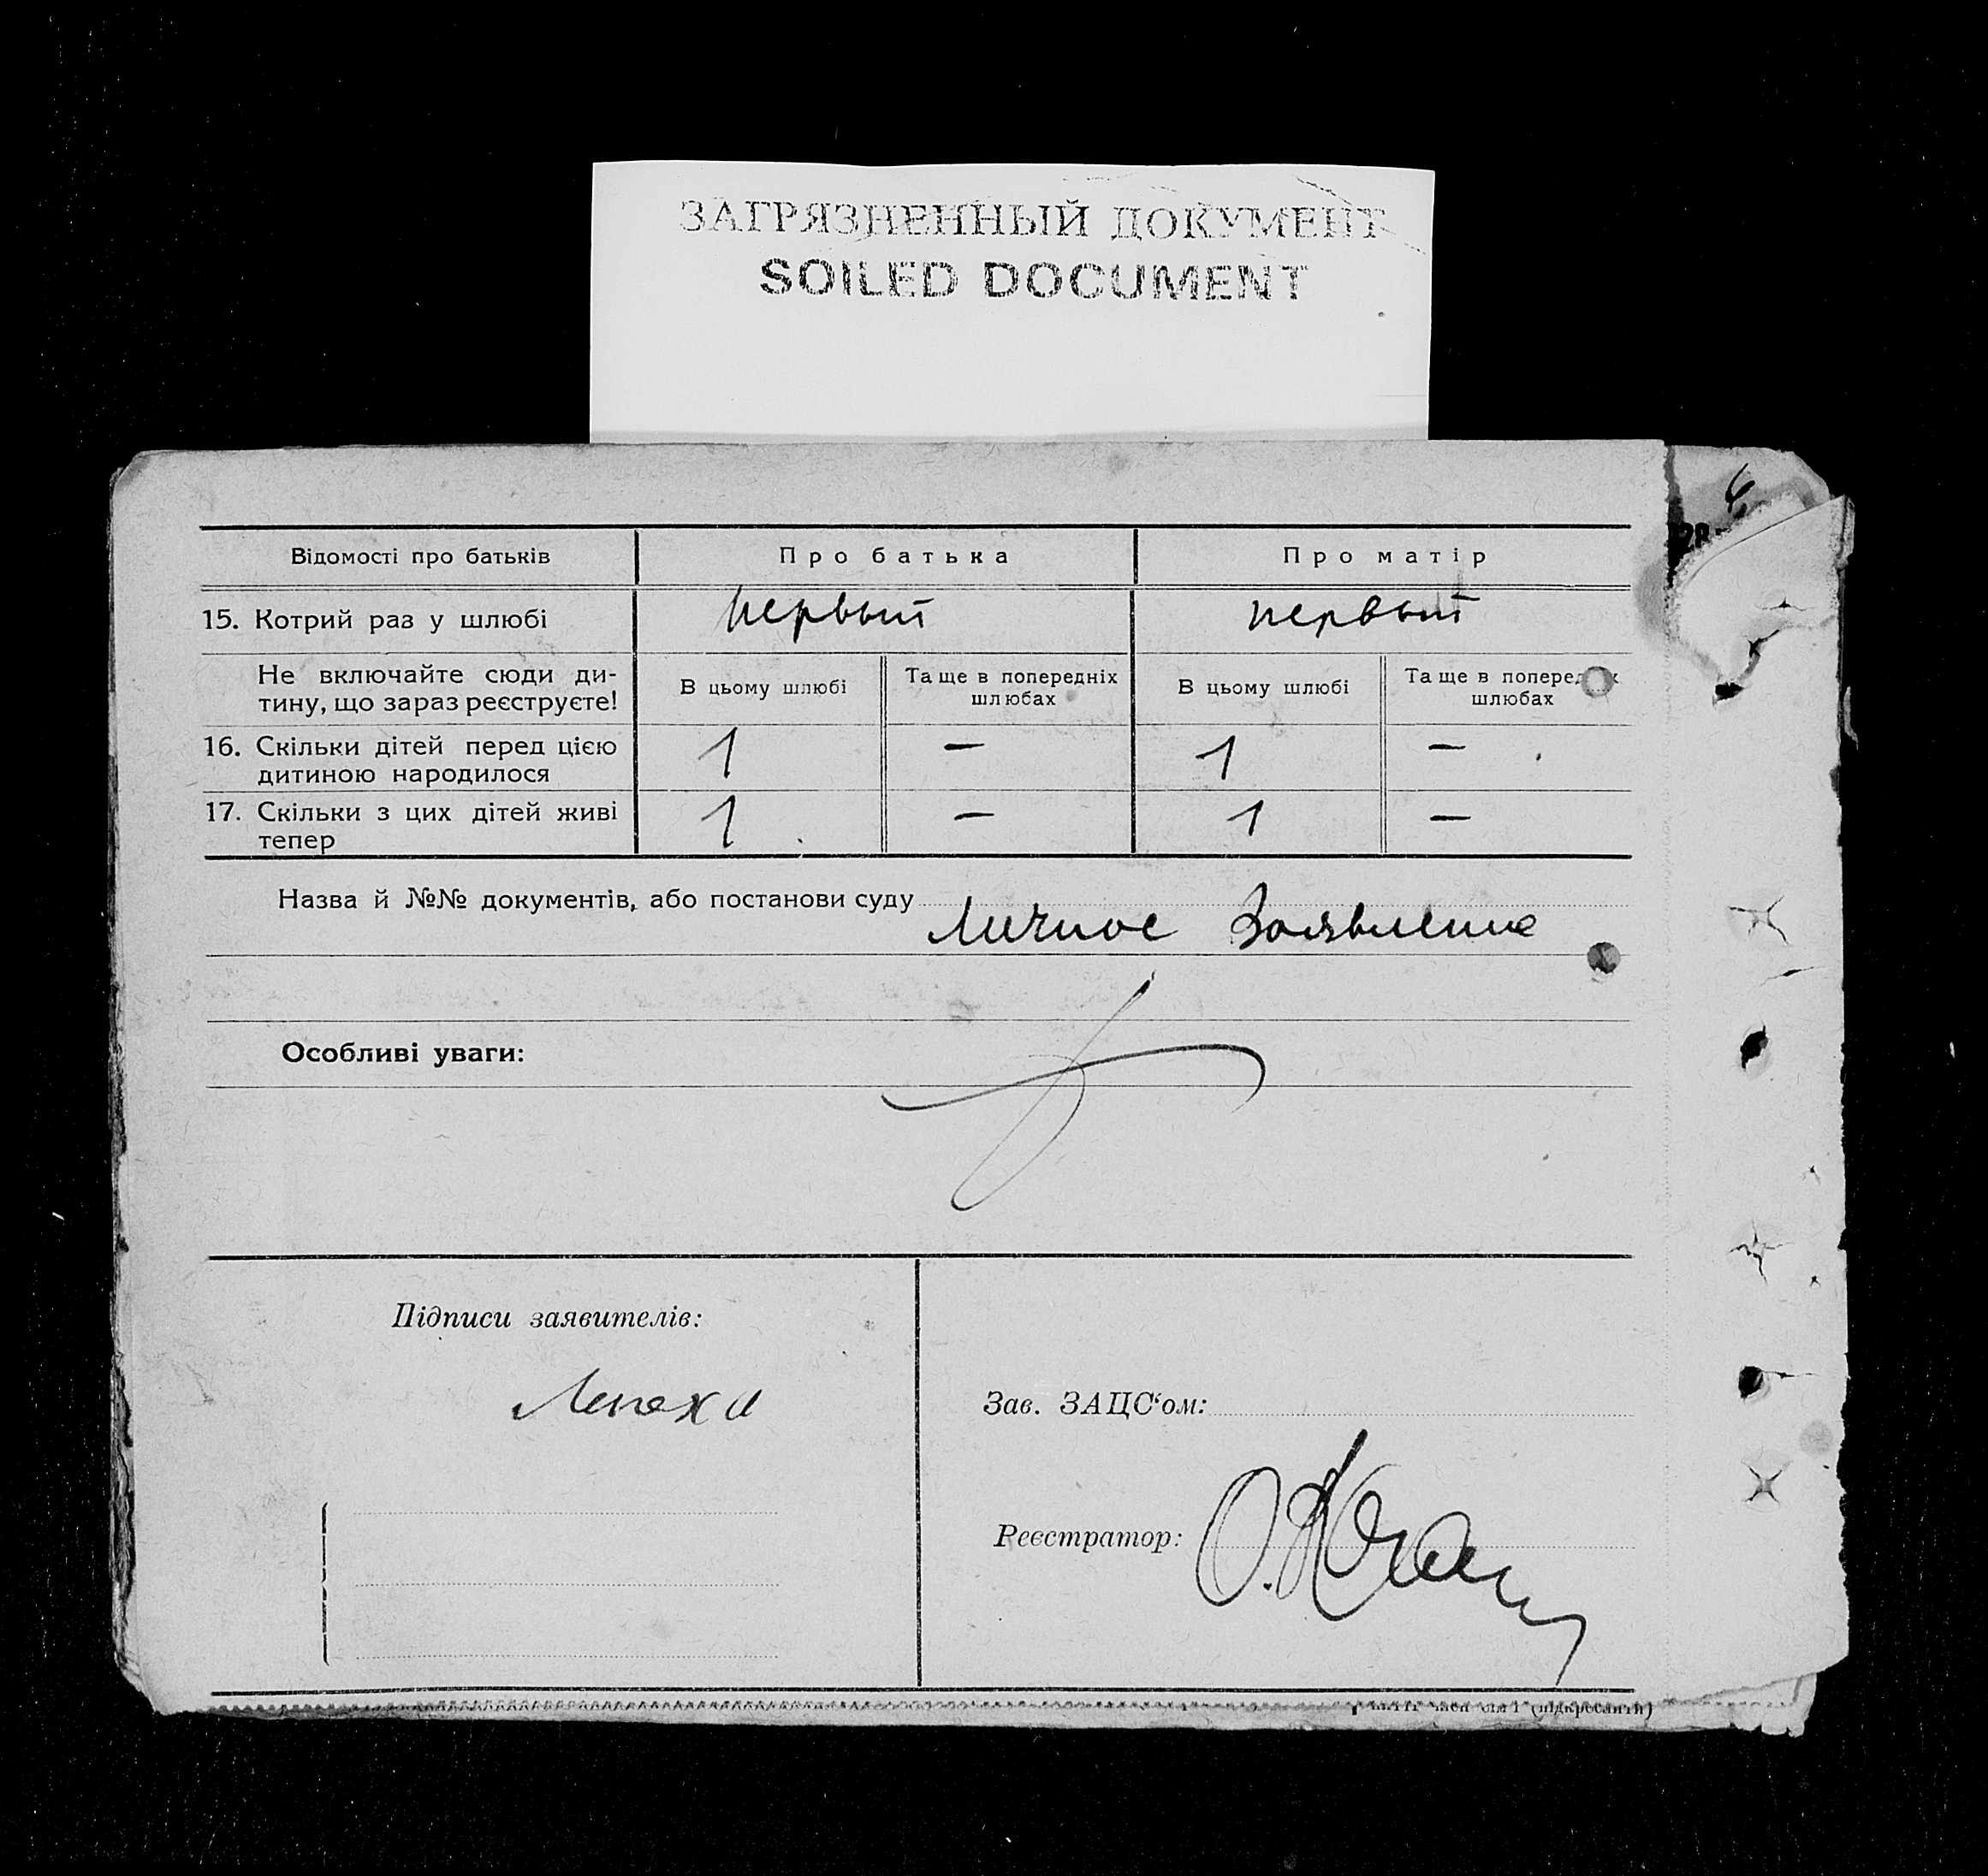 ЗАГРЯЗНЕННЫЙ ДОКУМЕНТ
SOILED DOCUMENT
Відомості про батьків Про батька Про матір
15. Котрий раз у шлюбі первый первый
Не включайте сюди ди-
тину, що зараз реєструєте!
В цьому шлюбі Та ще в попередніх
шлюбах
В цьому шлюбі Та ще в
шлюбах
16. Скільки дітей перед цією
дитиною народилося
1 – 1 –
17. Скільки з цих дітей живі
тепер
1 – 1 –
Назва й №№ документів, або постанови суду
личное заявление
Особливі уваги:
Підписи заявителів:
Зав. ЗАЦС‘ом:
Реєстратор:
(підкреслити)